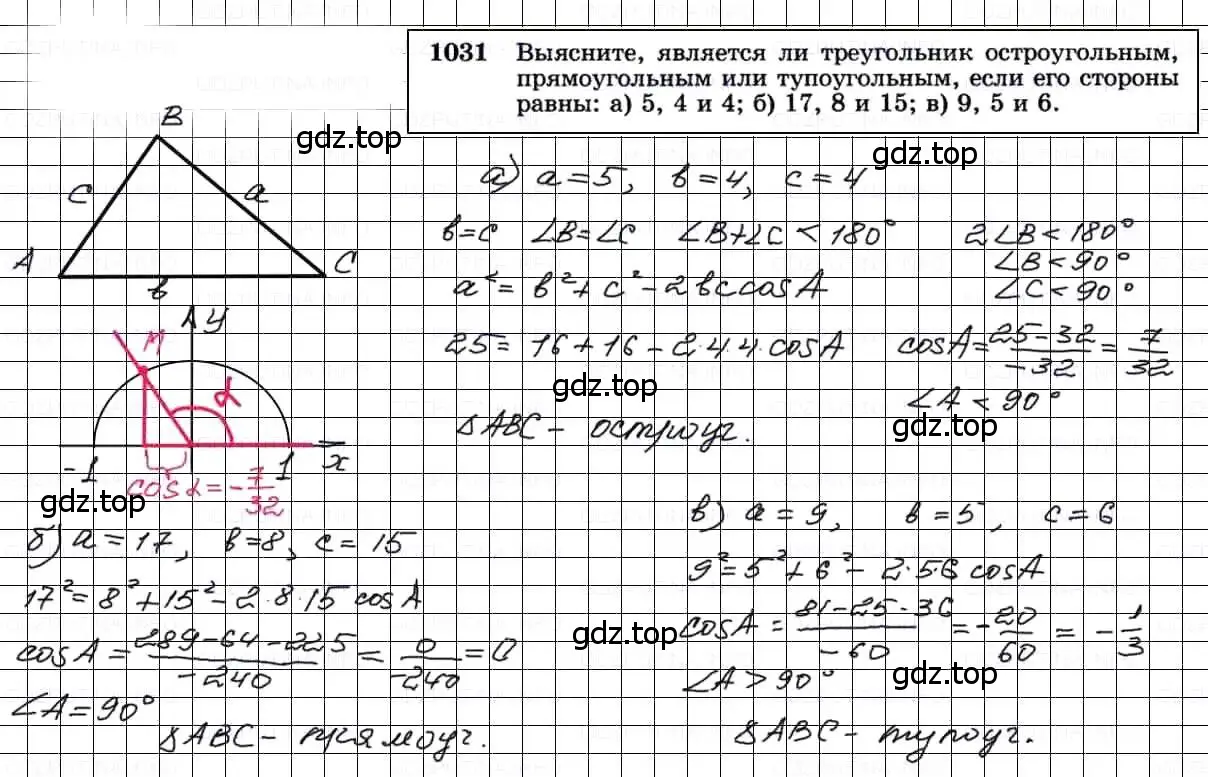 1031 Выясните, является ли треугольник остроугольным,
прямоугольным или тупоугольным, если его стороны
равны: а) 5, 4 и 4; б) 17, 8 и 15; в) 9, 5 и 6.
gdz.top
gdz.top
B
C
a
A
C
в
а) a = 5, в = 4, c = 4
в=c ∠B=∠C ∠B+∠C < 180° 2∠B < 180°
∠B < 90°
∠C < 90°
a² = в² + c² - 2вc cosA
25 = 16 + 16 - 2·4·4·cosA cosA = 25-32/-32 = 7/32
∠A < 90°
gdz.top
gdz.top
△ABC - остроуг.
y
M
α
-1
1
x
cosα = -7/32
gdz.top
б) a = 17, в=8, c = 15
17² = 8² + 15² - 2·8·15 cosA
cosA = 289-64-225/-240 = 0/-240 = 0
∠A = 90°
△ABC - прямоуг.
в) a = 9, в = 5, c = 6
9² = 5² + 6² - 2·5·6 cosA
gdz.top
cosA = 81-25-36/-60 = -20/60 = -1/3
∠A > 90°
gdz.top
△ABC - тупоуг.